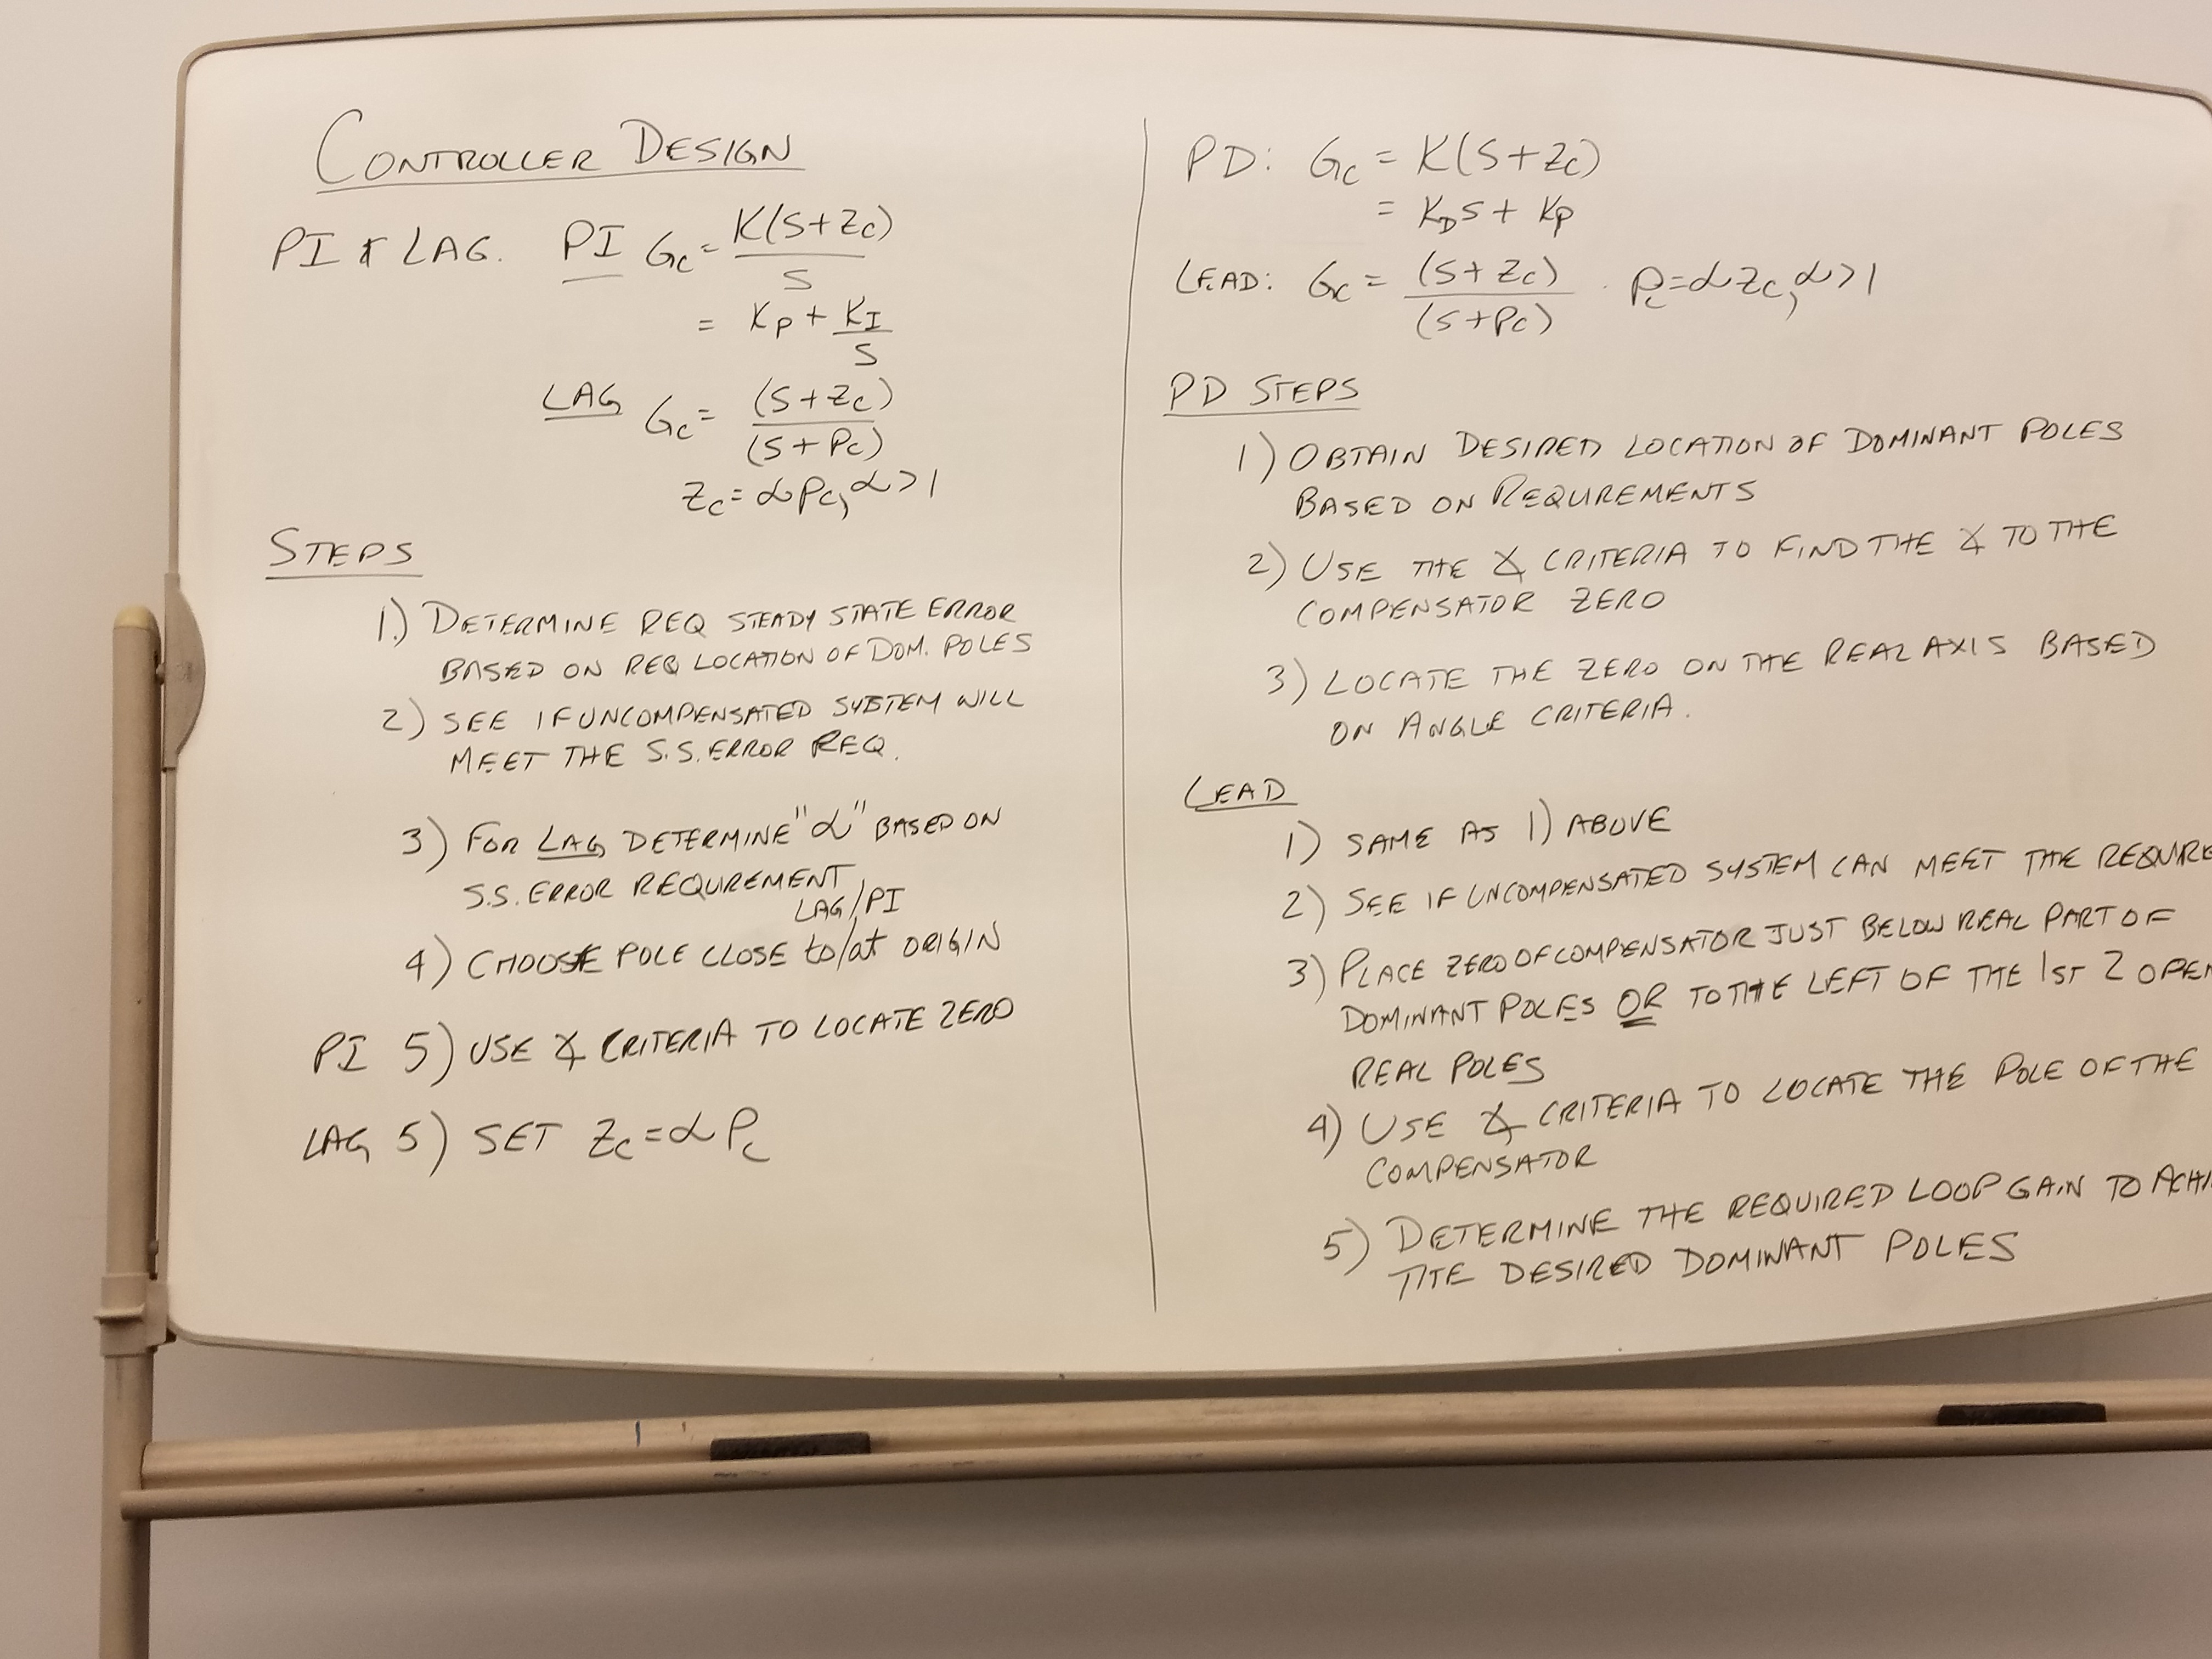 CONTROLLER DESIGN
PI & LAG. PI Gc = K(S+Zc)
S
= KP + KI
S
LAG Gc = (S+Zc)
(S+Pc)
Zc = αPc, α>1
STEPS
1.) DETERMINE REQ STEADY STATE ERROR
BASED ON REQ LOCATION OF DOM. POLES
2) SEE IF UNCOMPENSATED SYSTEM WILL
MEET THE S.S. ERROR REQ.
3) FOR LAG DETERMINE "α" BASED ON
S.S. ERROR REQUREMENT
LAG/PI
4) CHOOSE POLE CLOSE to/at ORIGIN
PI 5) USE ∡ CRITERIA TO LOCATE ZERO
LAG 5) SET Zc = αPc
PD: Gc = K(S+Zc)
= KDS + KP
LEAD: Gc = (S+Zc) . Pc=αZc, α>1
(S+Pc)
PD STEPS
1) OBTAIN DESIRED LOCATION OF DOMINANT POLES
BASED ON REQUREMENTS
2) USE THE ∡ CRITERIA TO FIND THE ∡ TO THE
COMPENSATOR ZERO
3) LOCATE THE ZERO ON THE REAL AXIS BASED
ON ANGLE CRITERIA.
LEAD
1) SAME AS 1) ABOVE
2) SEE IF UNCOMPENSATED SYSTEM CAN MEET THE REQURE
3) PLACE ZERO OF COMPENSATOR JUST BELOW REAL PART OF
DOMINANT POLES OR TO THE LEFT OF THE 1ST 2 OPEN
REAL POLES
4) USE ∡ CRITERIA TO LOCATE THE POLE OF THE
COMPENSATOR
5) DETERMINE THE REQUIRED LOOP GAIN TO ACHI
THE DESIRED DOMINANT POLES